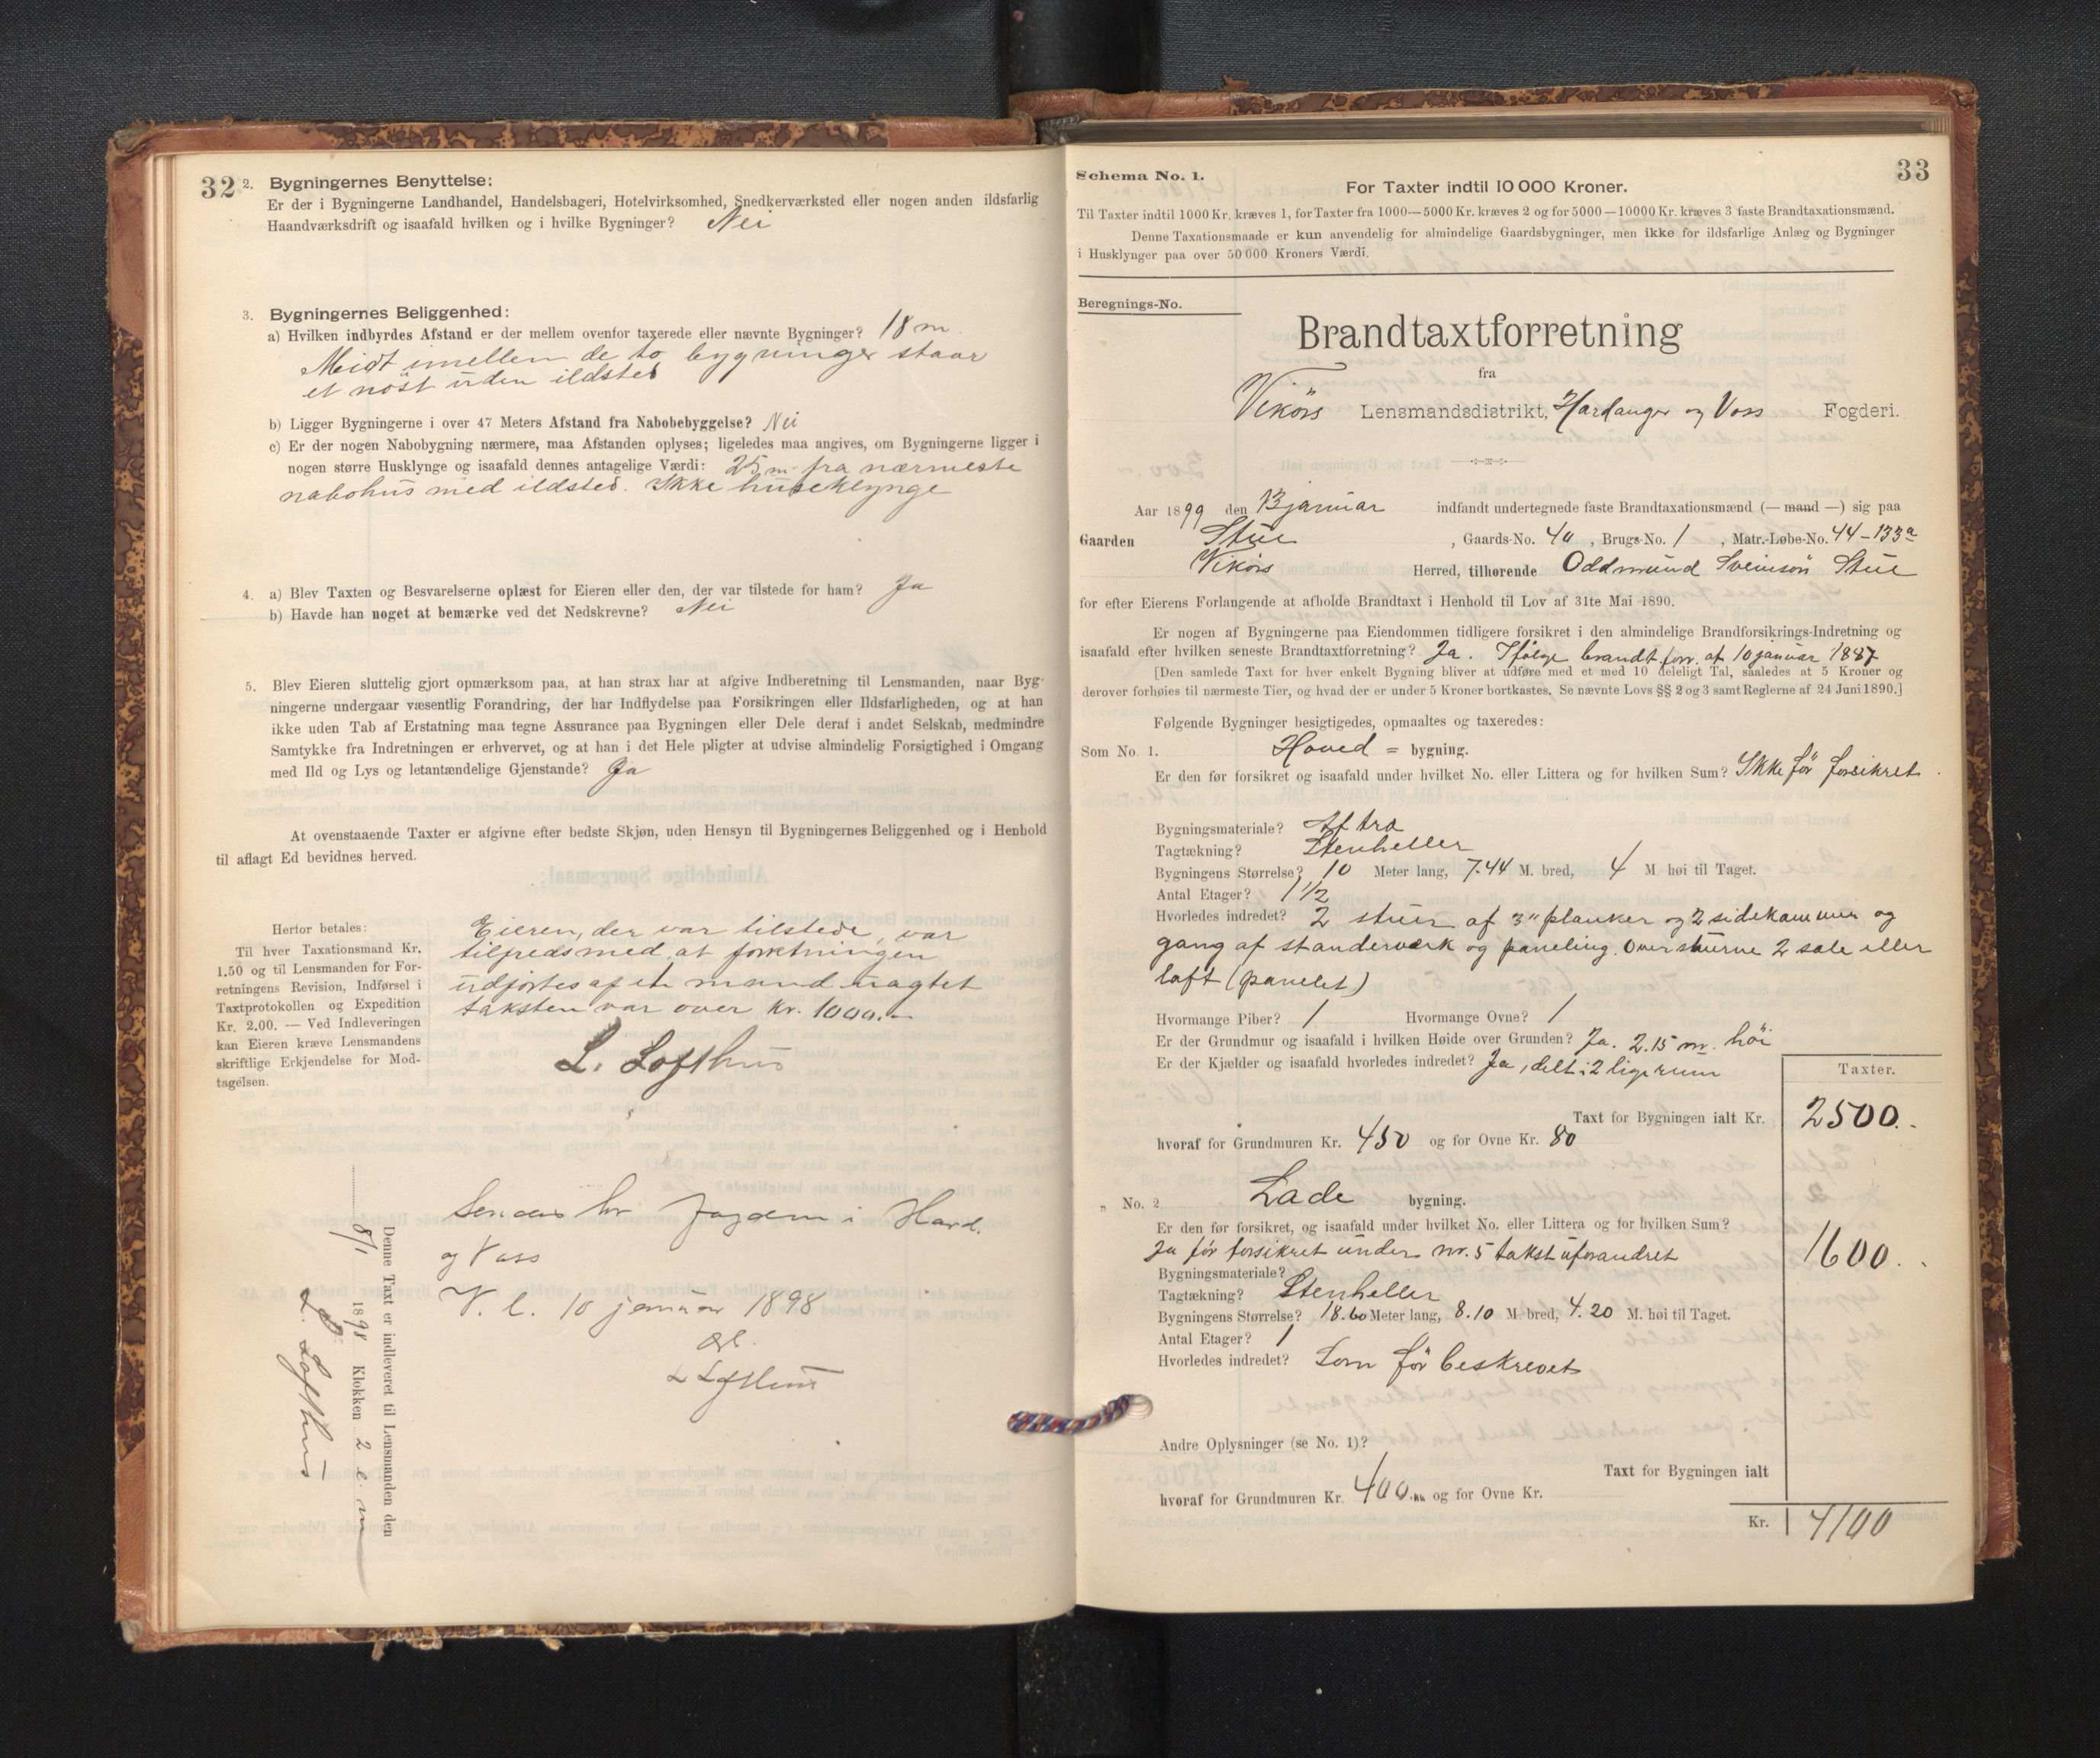 32
2. Bygningernes Benyttelse:
Er der i Bygningerne Landhandel, Handelsbageri, Hotelvirksomhed, Snedkerværksted eller nogen anden ildsfarlig
Haandværksdrift og isaafald hvilken og i hvilke Bygninger? Nei
3. Bygningernes Beliggenhed:
a) Hvilken indbyrdes Afstand er der mellem ovenfor taxerede eller nævnte Bygninger? 18 m
Midt imellem de to bygninger staar
et nöst uden ildsted
b) Ligger Bygningerne i over 47 Meters Afstand fra Nabobebyggelse? Nei
c) Er der nogen Nabobygning nærmere, maa Afstanden oplyses; ligeledes maa angives, om Bygningerne ligger i
nogen større Husklynge og isaafald dennes antagelige Værdi: 25 m. fra nærmeste
nabohus med ildsted. Ikke huseklynge
4. a) Blev Taxten og Besvarelserne oplæst for Eieren eller den, der var tilstede for ham? Ja
b) Havde han noget at bemærke ved det Nedskrevne? Nei
5. Blev Eieren sluttelig gjort opmærksom paa, at han strax har at afgive Indberetning til Lensmanden, naar Byg-
ningerne undergaar væsentlig Forandring, der har Indflydelse paa Forsikringen eller Ildsfarligheden, og at han
ikke uden Tab af Erstatning maa tegne Assurance paa Bygningen eller Dele deraf i andet Selskab, medmindre
Samtykke fra Indretningen er erhvervet, og at han i det Hele pligter at udvise almindelig Forsigtighed i Omgang
med Ild og Lys og letantændelige Gjenstande? Ja
At ovenstaaende Taxter er afgivne efter bedste Skjøn, uden Hensyn til Bygningernes Beliggenhed og i Henhold
til aflagt Ed bevidnes herved.
Herfor betales:
Til hver Taxationsmand Kr.
1.50 og til Lensmanden for For-
retningens Revision, Indførsel i
Taxtprotokollen og Expedition
Kr. 2.00. — Ved Indleveringen
kan Eieren kræve Lensmandens
skriftlige Erkjendelse for Mod-
tagelsen.
Eieren, der var tilstede, var
tilfreds med, at forretningen
udførtes af en mand uagtet
taksten var over kr. 1000.-
L. Lofthus
Sendes hr. Fogden i Hard.
og Voss
V. l. 10 januar 1898
L Lofthus
Denne Taxt er indleveret til Lensmanden den
8/1 1898 Klokken 2 e. m
L. Lofthus
33
Schema No. 1.
For Taxter indtil 10 000 Kroner.
Til Taxter indtil 1000 Kr. kræves 1, for Taxter fra 1000—5000 Kr. kræves 2 og for 5000—10000 Kr. kræves 3 faste Brandtaxationsmænd.
Denne Taxationsmaade er kun anvendelig for almindelige Gaardsbygninger, men ikke for ildsfarlige Anlæg og Bygninger
i Husklynger paa over 50 000 Kroners Værdi.
Beregnings-No.
Brandtaxtforretning
fra
Vikörs Lensmandsdistrikt, Hardanger og Voss Fogderi.
Aar 1899 den 13 januar indfandt undertegnede faste Brandtaxationsmænd (— mand —) sig paa
Gaarden Stue, Gaards-No. 40, Brugs-No. 1, Matr.-Løbe-No. 44-133a
Vikörs Herred, tilhørende Oddmund Sveinsön Stue
for efter Eierens Forlangende at afholde Brandtaxt i Henhold til Lov af 31te Mai 1890.
Er nogen af Bygningerne paa Eiendommen tidligere forsikret i den almindelige Brandforsikrings-Indretning og
isaafald efter hvilken seneste Brandtaxtforretning? Ja. Ifölge brandt.forr. af 10 januar 1887
[Den samlede Taxt for hver enkelt Bygning bliver at udføre med et med 10 deleligt Tal, saaledes at 5 Kroner og
derover forhøies til nærmeste Tier, og hvad der er under 5 Kroner bortkastes. Se nævnte Lovs §§ 2 og 3 samt Reglerne af 24 Juni 1890.]
Følgende Bygninger besigtigedes, opmaaltes og taxeredes:
Som No. 1. Hoved = bygning.
Er den før forsikret og isaafald under hvilket No. eller Littera og for hvilken Sum? Ikke för forsikret.
Bygningsmateriale? Af træ
Tagtækning? Stenheller
Bygningens Størrelse? 10 Meter lang, 7.44 M. bred, 4 M høi til Taget.
Antal Etager? 1 1/2
Hvorledes indredet? 2 stuer af 3" planker og 2 sidekammer og
gang af standerværk og paneling. Over stuerne 2 sale eller
loft (panelet)
Hvormange Piber? 1 Hvormange Ovne? 1
Er der Grundmur og isaafald i hvilken Høide over Grunden? Ja. 2.15 m. höi
Er der Kjælder og isaafald hvorledes indredet? Ja, delt i 2 lige rum
Taxter.
Taxt for Bygningen ialt Kr. 2500.-
hvoraf for Grundmuren Kr. 450 og for Ovne Kr. 80
„ No. 2 Lade bygning.
Er den før forsikret, og isaafald under hvilket No. eller Littera og for hvilken Sum?
Ja för forsikret under nr. 5 takst uforandret 1600.-
Bygningsmateriale?
Tagtækning? Stenheller
Bygningens Størrelse? 18.60 Meter lang, 8.10 M bred, 4.20 M. høi til Taget.
Antal Etager? 1
Hvorledes indredet? Som för beskrevet
Andre Oplysninger (se No. 1)?
Taxt for Bygningen ialt
hvoraf for Grundmuren Kr. 400.- og for Ovne Kr.
Kr. 4100